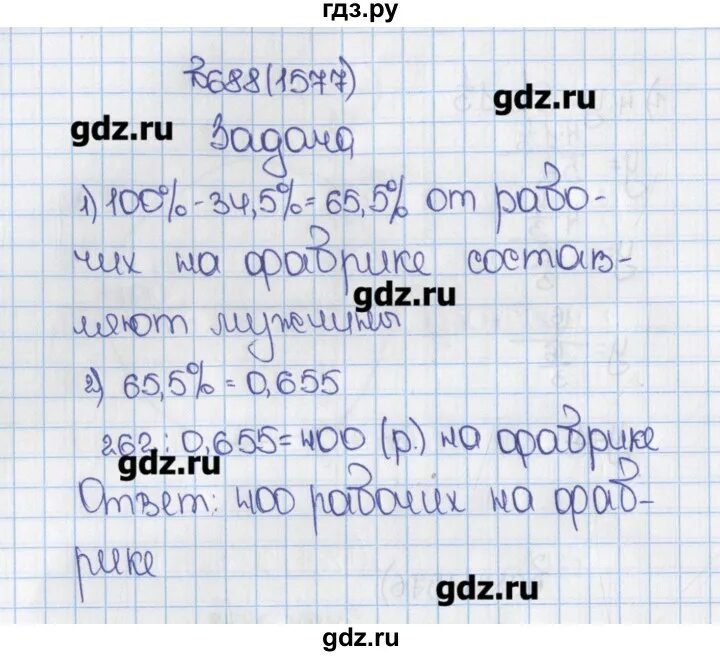 гдз.ру
№688(1577)
gdz.ru
gdz.ru
Задача
1) 100% - 34,5% = 65,5% от рабо-
чих на фабрике состав-
gdz.ru
ляют мужчины
2) 65,5% = 0,655
262 : 0,655 = 400 (р.) на фабрике
gdz.ru
Ответ: 400 рабочих на фаб-
рике
gdz.ru
gdz.ru